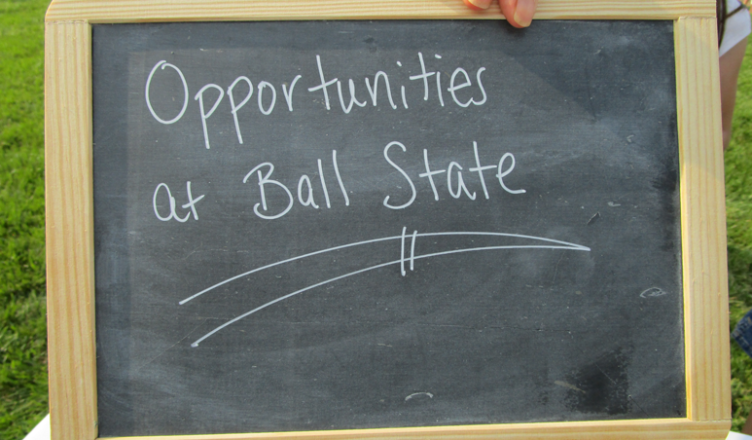 Opportunities
at Ball State